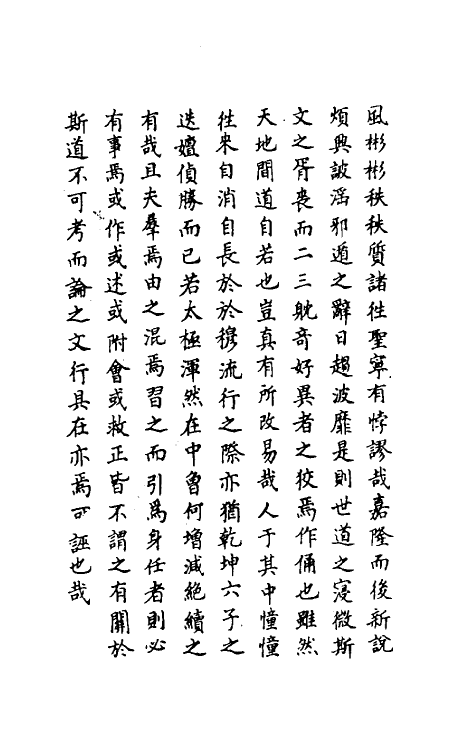 風彬彬秩秩質諸往聖寧有悖謬哉嘉隆而後新說
煩興詖淫邪遁之辭日趨波靡是則世道之寖微斯
文之胥喪而二三耽奇好異者之狡焉作俑也雖然
天地間道自若也豈真有所改易哉人于其中憧憧
往來自消自長於於穆流行之際亦猶乾坤六子之
迭嬗偵勝而已若太極渾然在中曾何增減絕續之
有哉且夫羣焉由之混焉習之而引爲身任者則必
有事焉或作或述或附會或救正皆不謂之有關於
斯道不可考而論之文行具在亦焉可誣也哉